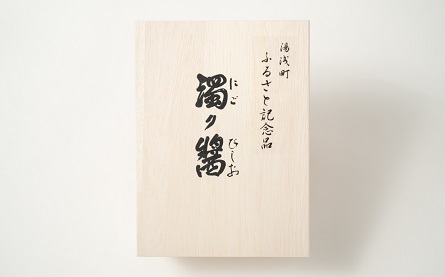 湯浅町
ふるさと記念品
濁り醤
にご
ひしお